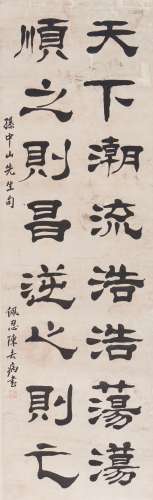 天下潮流浩浩蕩蕩
順之則昌逆之則亡
孫中山先生句
佩忍陳去病書